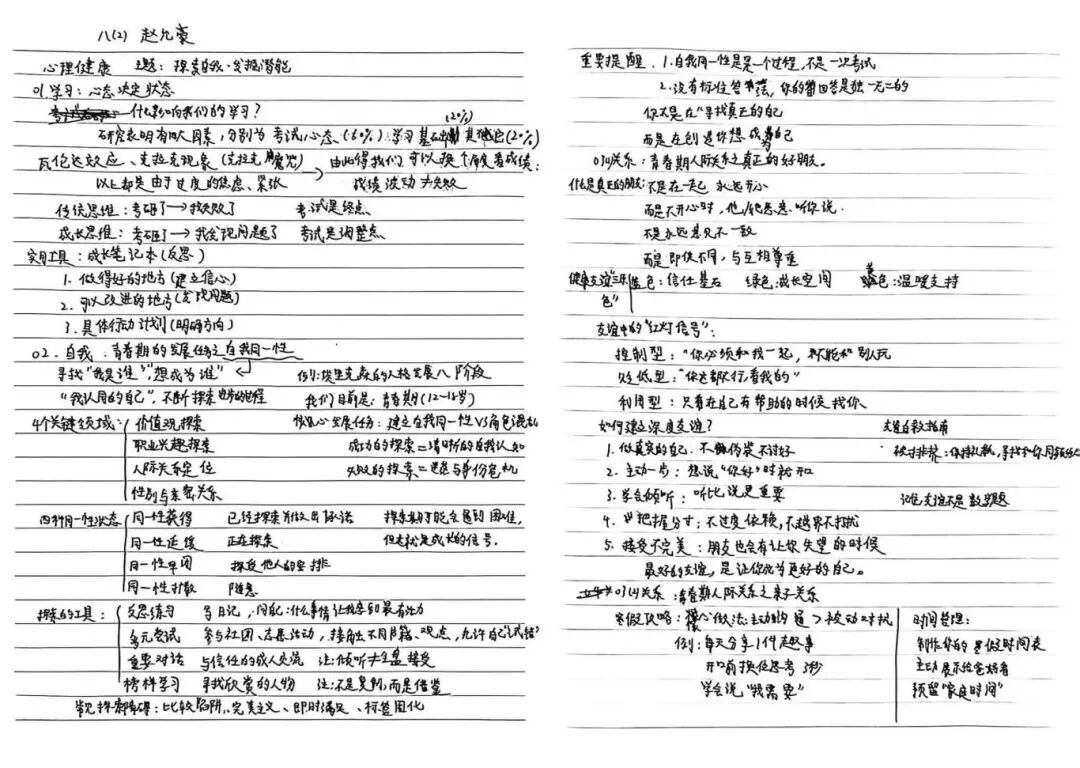 八(2) 赵允豪
心理健康 主题：探索自我·发掘潜能
01.学习：心态决定状态
什么影响我们的学习？
研究表明有四大因素，分别为考试心态、(60%)学习基础 (20%) 其他(20%)
瓦伦达效应、克拉克现象(克拉克魔咒) → 由此得我们可以换个角度看成绩：
以上都是由于过度的焦虑、紧张 成绩波动≠失败
传统思维：考砸了→我失败了 考试是终点
成长思维：考砸了→我发现问题了 考试是调整点
实用工具：成长笔记本(反思)
1. 做得好的地方(建立信心)
2. 可以改进的地方(发现问题)
3. 具体行动计划(明确方向)
02. 自我：青春期的发展任务之自我同一性
寻找“我是谁”，“想成为谁” 例：埃里克森的人格发展八阶段
“我认同的自己”，不断探索 的过程 我们目前是：青春期(12-18岁)
4个关键领域： 价值观探索 核心发展任务：建立自我同一性VS角色混乱
职业兴趣探索 成功的探索=清晰的自我认知
人际关系定位 失败的探索=迷茫与身份危机
性别与亲密关系
四种同一性状态 同一性获得 已经探索并做出承诺 探索期可能会遇到困难，
同一性延缓 正在探索 但这就是成长的信号.
同一性早闭 接受他人的安排
同一性扩散 随意
探索的工具： 反思练习 写日记，问自己：什么事情让我感到最有活力
多元尝试 参与社团、志愿活动，接触不同书籍、观点，允许自己“试错”
重要对话 与信任的成人交流 注：倾听≠全盘接受
榜样学习 寻找欣赏的人物 注：不是复制，而是借鉴
常见探索障碍：比较陷阱、完美主义、即时满足、标签固化
重要提醒：1. 自我同一性是一个过程，不是一次考试
2. 没有标准答案，你的回答是独一无二的
你不是在“寻找真正的自己
而是在创造你想成为自己
03关系：青春期人际关系之真正的好朋友。
什么是真正的朋友：不是在一起永远开心
而是不开心时，他/她愿意听你说.
不是永远意见不一致
而是即使不同，与互相尊重
健康友谊“三环色” 蓝色：信任基石 绿色：成长空间 黄色：温暖支持
友谊中的“红灯信号”：
控制型：“你必须和我一起，不能和别人玩
贬低型：“你这都不行，看我的”
利用型：只有在自己有帮助的时候找你
如何建立深度友谊？ 友谊自救指南
1. 做真实的自己. 不伪装不讨好 被排挤：保持礼貌，寻找和你同频的人
2. 主动一步：想说“你好”时就开口
3. 学会倾听：听比说更重要 记住友谊不是数学题
4. 把握分寸：不过度依赖，不越界不打扰
5. 接受不完美：朋友也会有让你失望的时候
最好的友谊，是让你成为更好的自己。
04关系：青春期人际关系之亲子关系
寒假攻略：核心做法：主动沟通>被动对抗 时间管理：
例：每天分享1件趣事 制作你的寒假时间表
开口前换位思考3秒 主动展示给爸妈看
学会说“我需要” 预留“家庭时间”